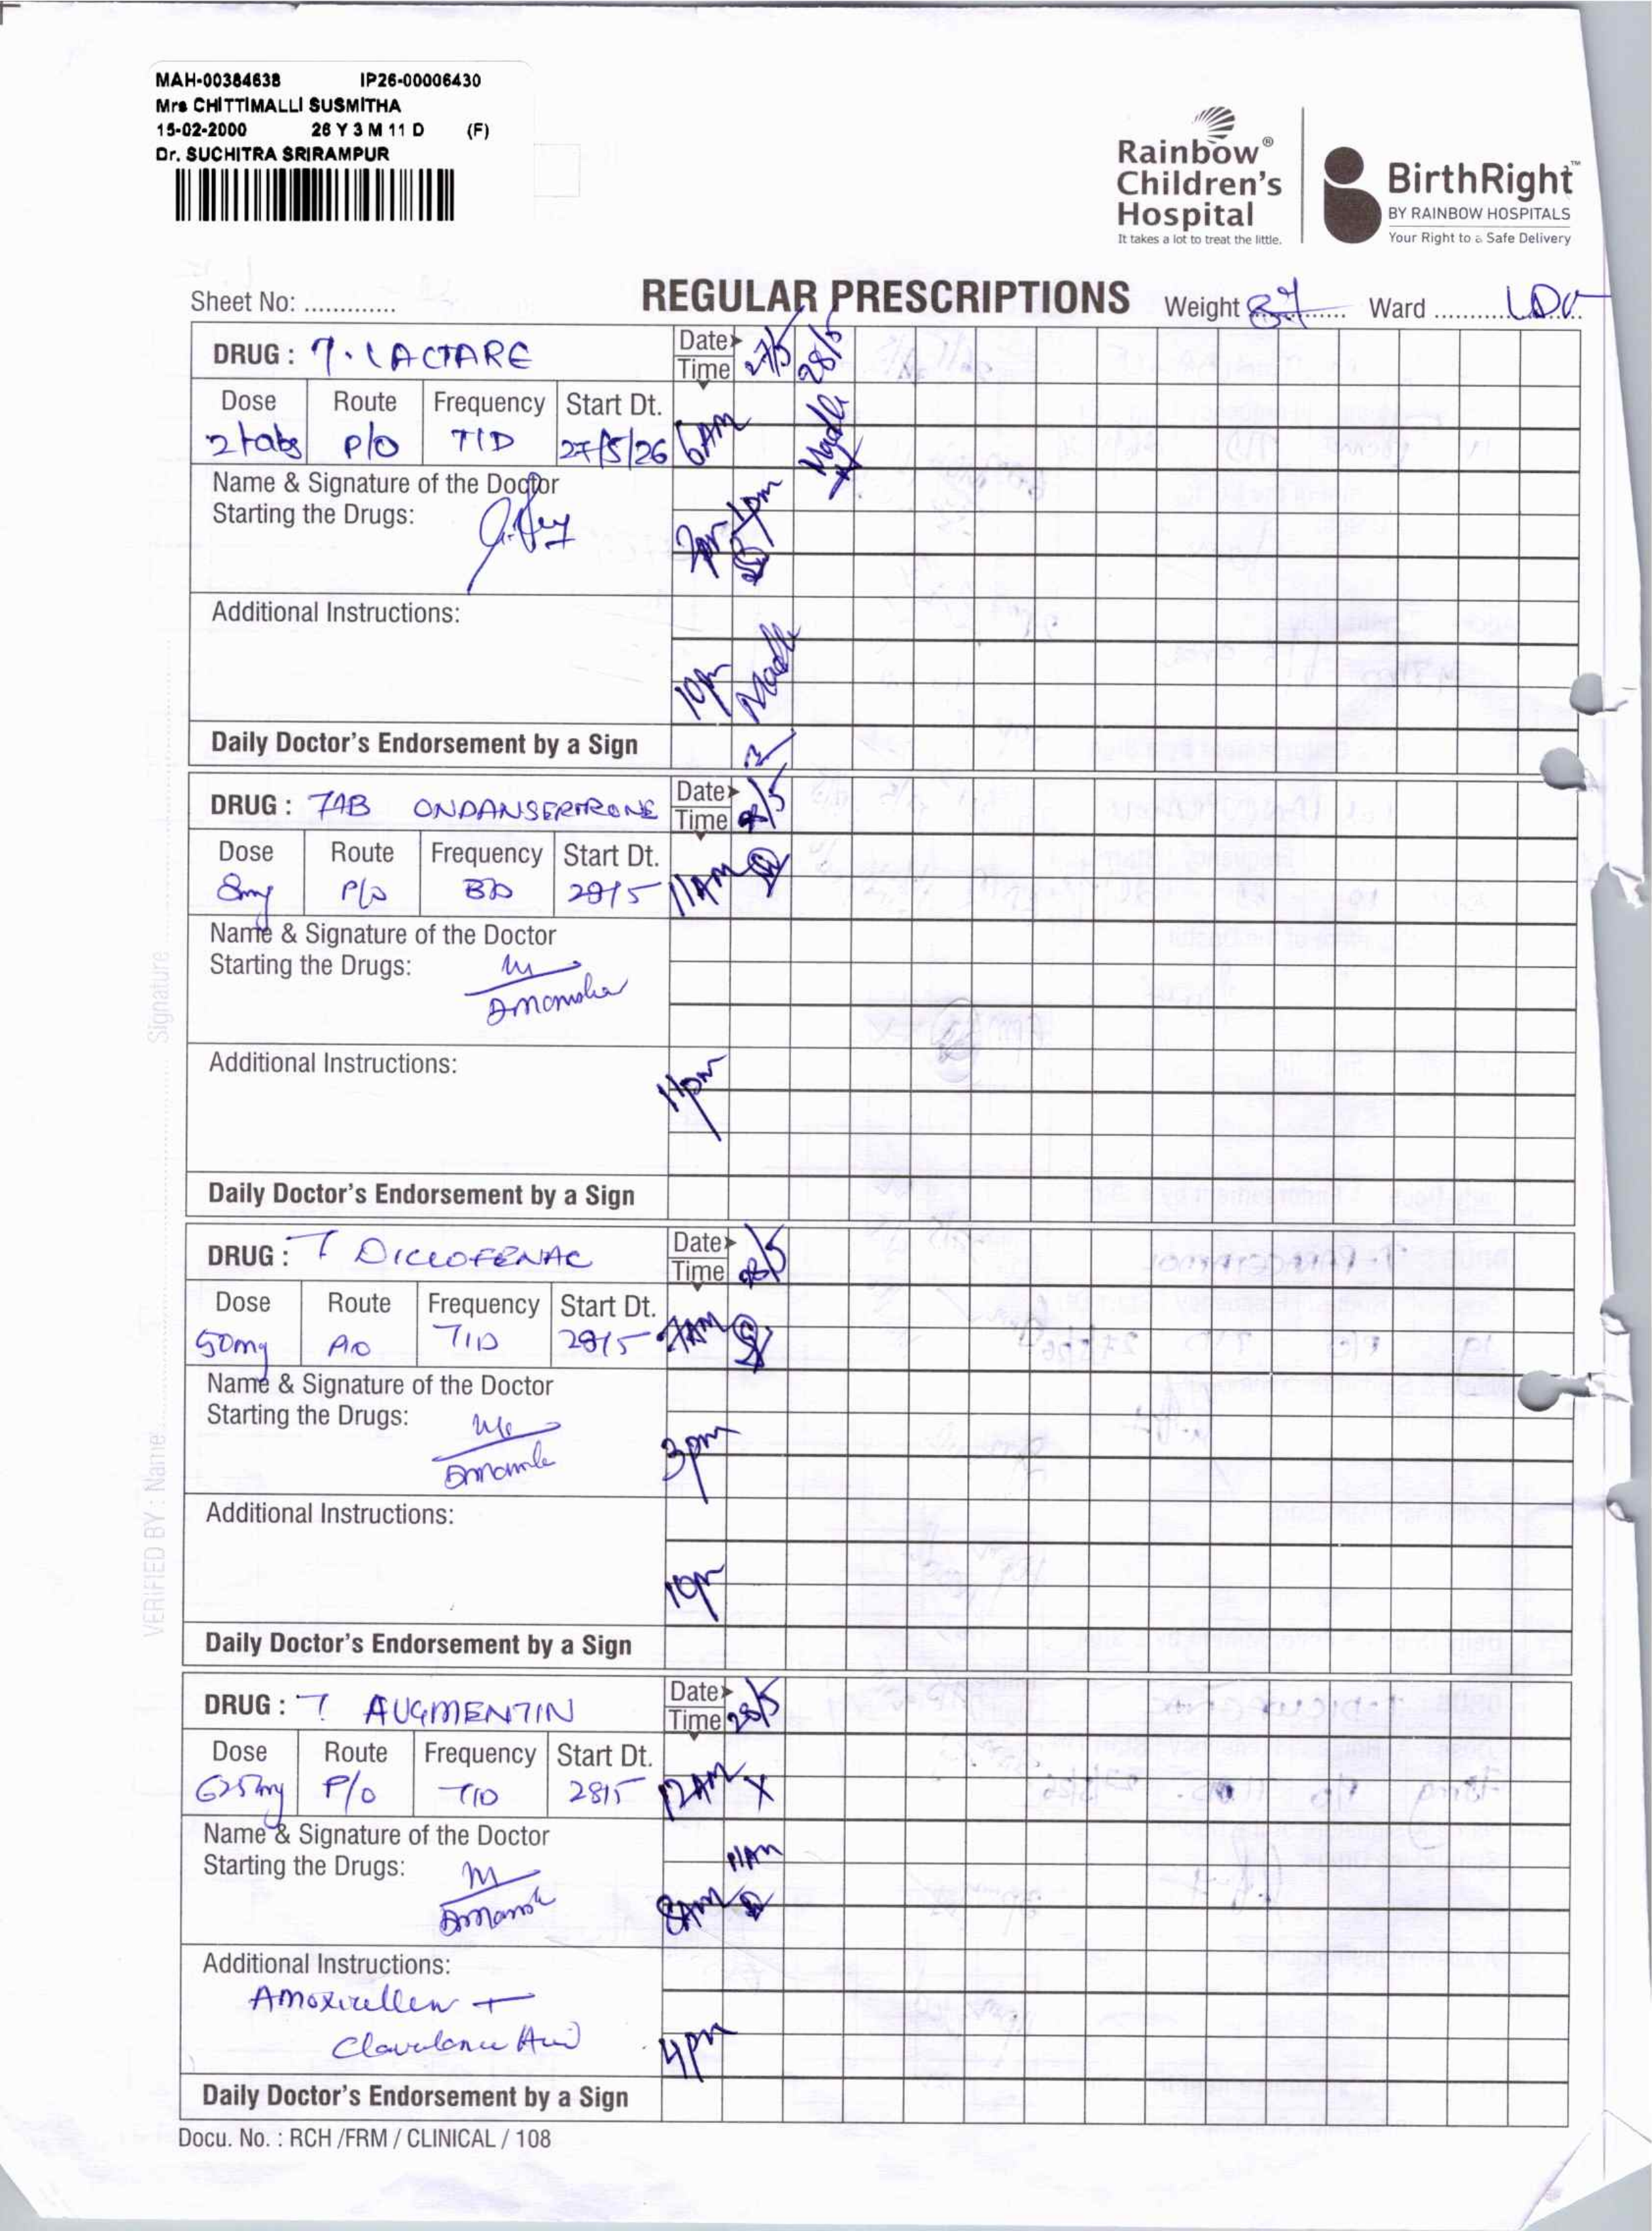 MAH-00384638 IP26-00006430
Mrs CHITTIMALLI SUSMITHA
15-02-2000 26 Y 3 M 11 D (F)
Dr. SUCHITRA SRIRAMPUR
Rainbow® Children's Hospital
It takes a lot to treat the little.
BirthRight™
BY RAINBOW HOSPITALS
Your Right to a Safe Delivery
Sheet No: .............
REGULAR PRESCRIPTIONS Weight 87 Ward
DRUG : T. LACTARE Date 27/5 28/5
Time
Dose Route Frequency Start Dt.
2 tabs P/O TID 27/5/26 6AM
Name & Signature of the Doctor
Starting the Drugs:
2pm 4pm
Additional Instructions:
10pm
Daily Doctor's Endorsement by a Sign
DRUG : TAB ONDANSERTRONE Date 28/5
Time
Dose Route Frequency Start Dt.
8mg P/O BD 28/5 11AM
Name & Signature of the Doctor
Starting the Drugs:
Additional Instructions:
11pm
Daily Doctor's Endorsement by a Sign
DRUG : T DICLOFENAC Date 28/5
Time
Dose Route Frequency Start Dt.
50mg P/O TID 28/5 7AM
Name & Signature of the Doctor
Starting the Drugs:
3pm
Additional Instructions:
10pm
Daily Doctor's Endorsement by a Sign
DRUG : T AUGMENTIN Date 28/5
Time
Dose Route Frequency Start Dt.
625mg P/O TID 28/5 12AM X
Name & Signature of the Doctor
Starting the Drugs:
11AM
8AM
Additional Instructions:
Amoxicillin +
Clavulanic Acid
4pm
Daily Doctor's Endorsement by a Sign
Docu. No. : RCH /FRM / CLINICAL / 108
VERIFIED BY : Name: Signature